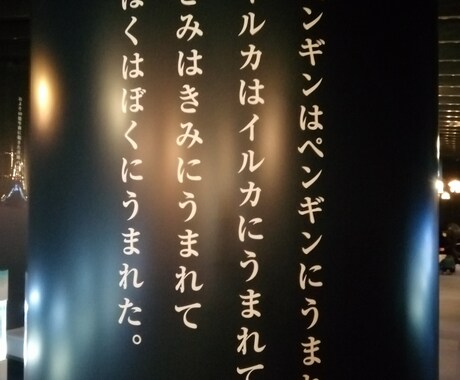 ンギンはペンギンにうまれ
イルカはイルカにうまれて
きみはきみにうまれて
ぼくはぼくにうまれた。